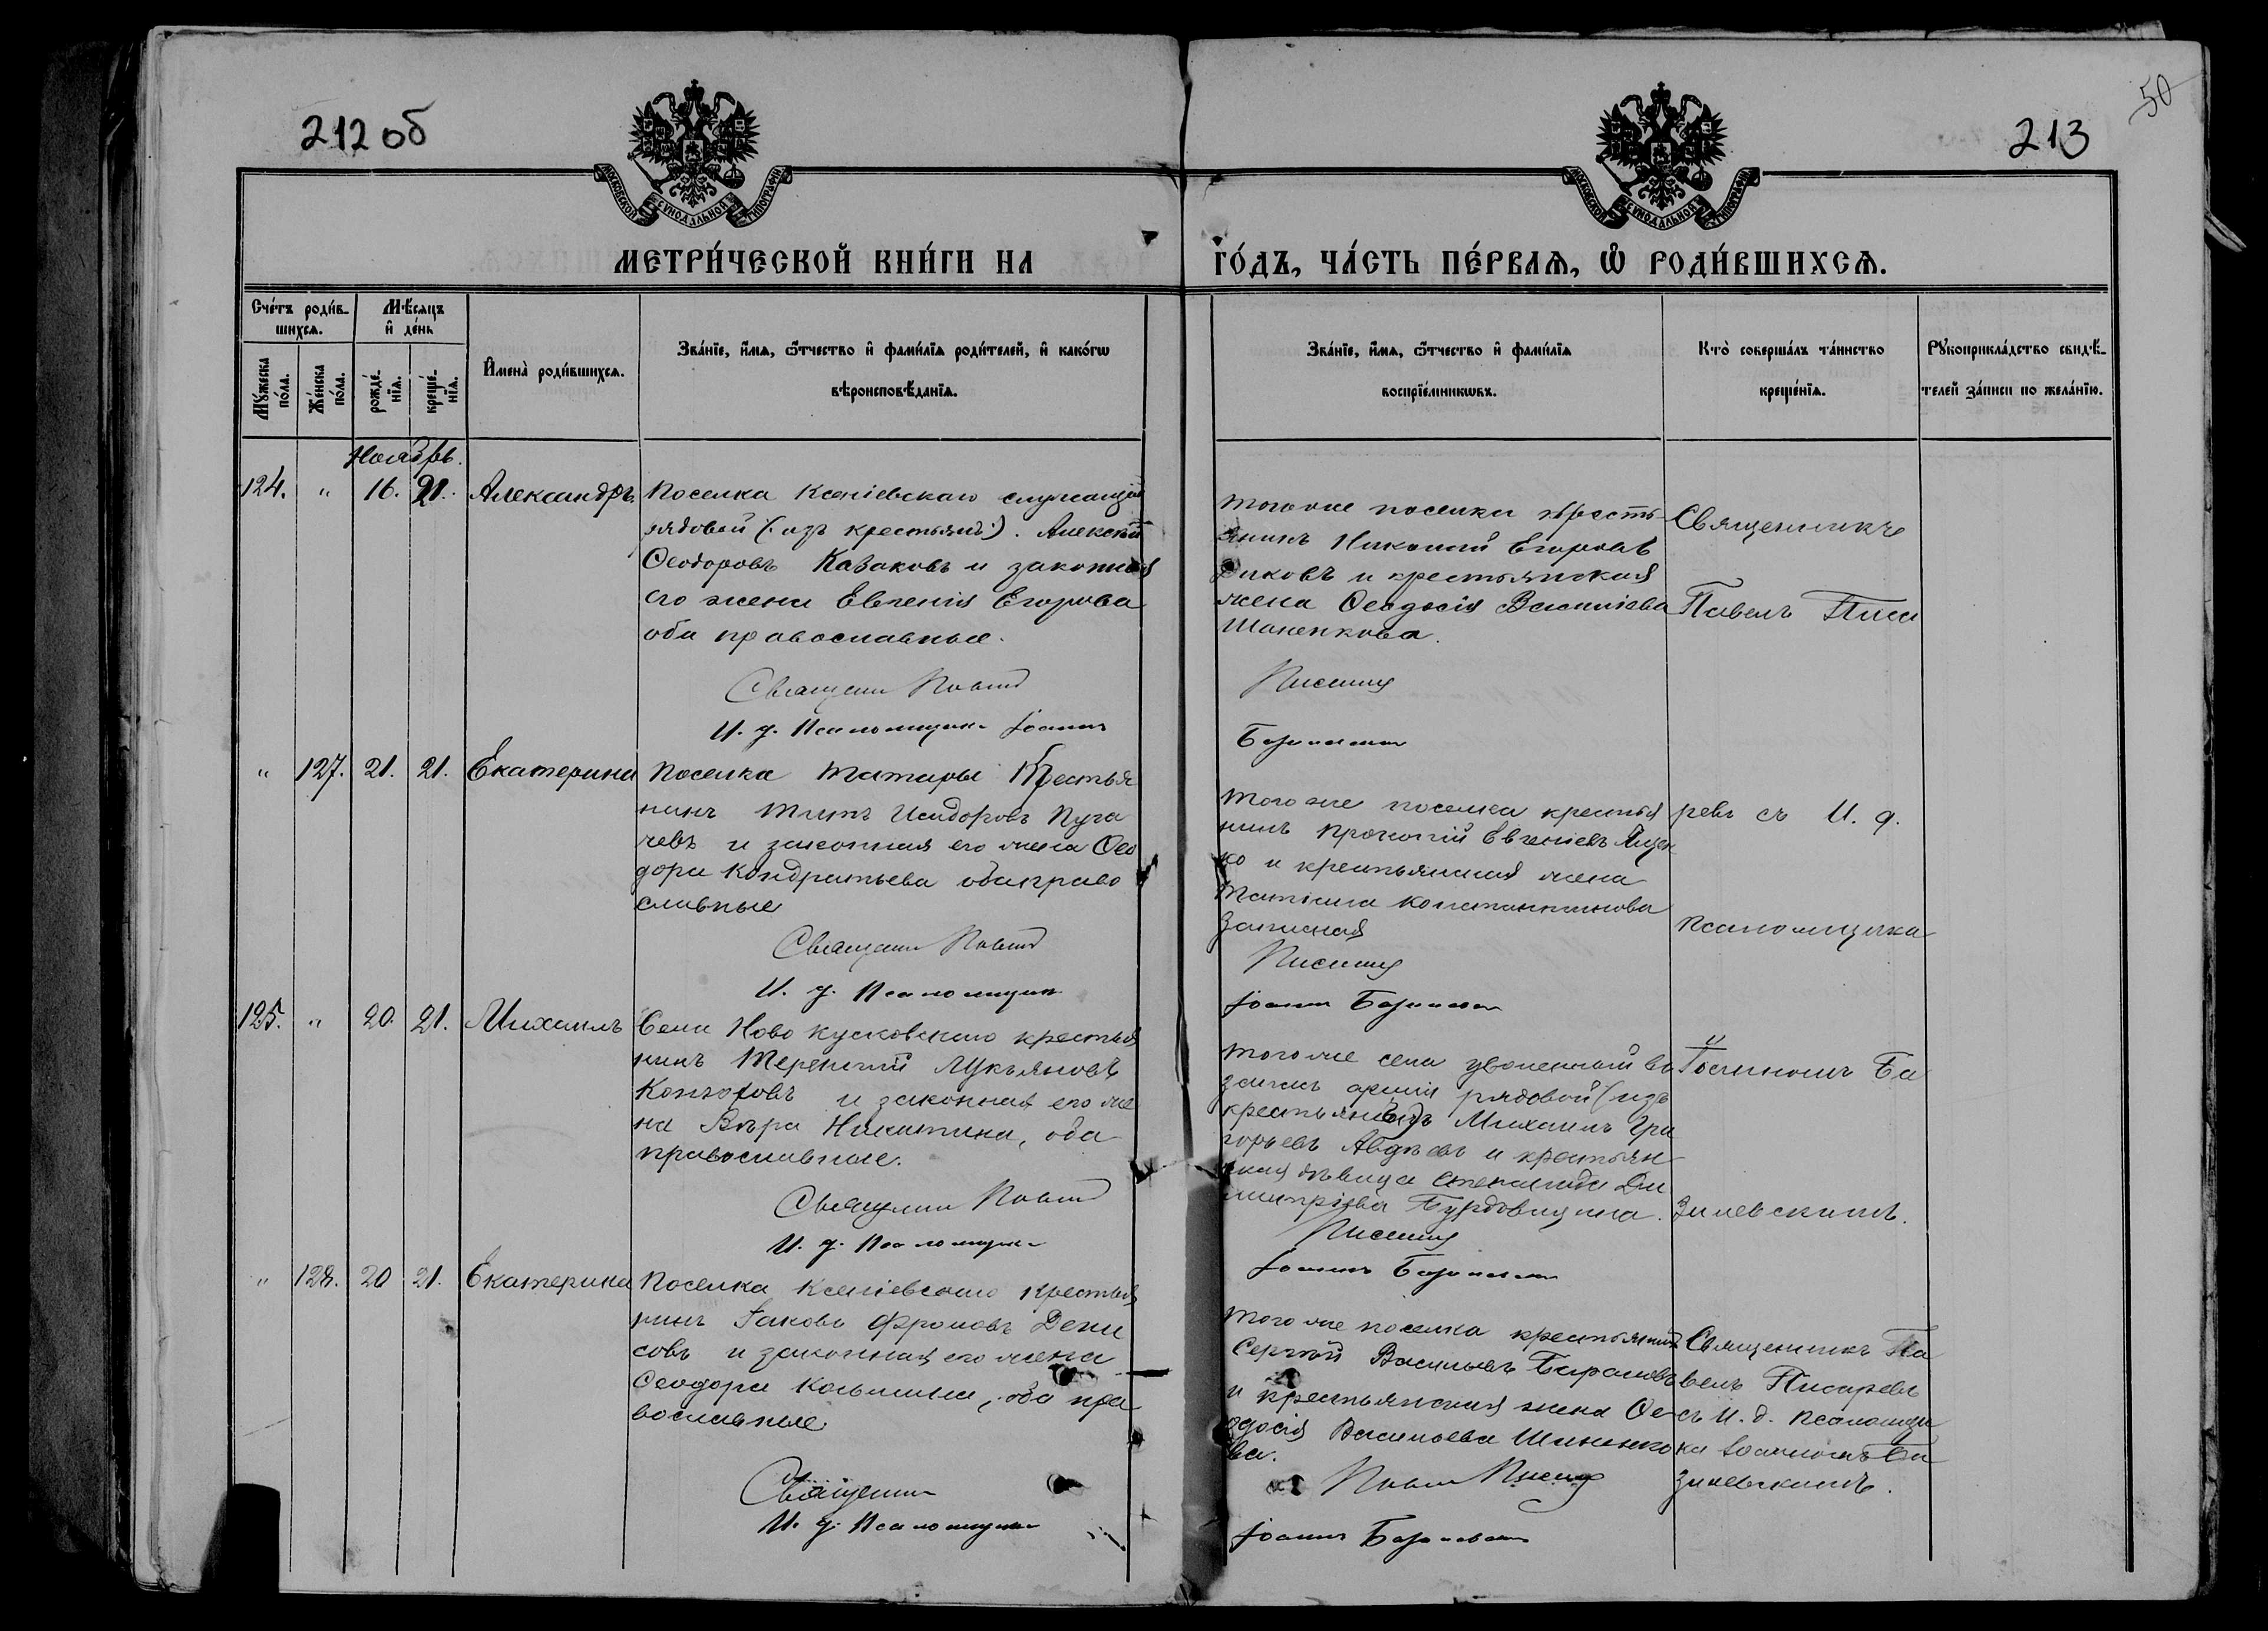 212 об
213
50
МОСКОВСКОЙ СѴНОДАЛЬНОЙ ТИПОГРАФІИ
МОСКОВСКОЙ СѴНОДАЛЬНОЙ ТИПОГРАФІИ
МЕТРИ́ЧЕСКОЙ КНИ́ГИ НА
ГО́ДЪ, ЧА́СТЬ ПЕ́РВАѦ, Ѡ РОДИ́ВШИХСѦ.
Сче́тъ роди́в-
шихсѧ.
Мѣ́сѧцъ
и҆ де́нь
Мꙋ́жеска
по́ла.
Же́нска
по́ла.
рожде́-
нїѧ.
креще́-
нїѧ.
И҆мена̀ роди́вшихсѧ.
Зва́нїе, и҆́мѧ, ѻ҆́тчество и҆ фами́лїѧ роди́телей, и҆ како́гѡ
вѣроисповѣ́данїѧ.
Зва́нїе, и҆́мѧ, ѻ҆́тчество и҆ фами́лїѧ
воспрїе́мникѡвъ.
Кто̀ соверша́лъ та́инство
креще́нїѧ.
Рꙋкоприкла́дство свидѣ́-
телей за́писи по жела́нїю.
Ноябрь.
124. " 16. 21. Александръ.
Поселка Ксеніевскаго служащій
рядовой (изъ крестьянъ). Алексѣй
Ѳеодоровъ Казаковъ и законная
его жена Евгенія Егорова
оба православные.
Священн Павелъ
И. д. Псаломщика Іоаннъ
тогоже поселка кресть-
янинъ Николай Егоровъ
Диковъ и крестьянская
жена Ѳеодосія Василіева
Шаненкова.
Писаревъ
Базилевскій
Священникъ
Павелъ Писа
" 127. 21. 21. Екатерина
Поселка Татары Крестья
нинъ Титъ Исидоровъ Пуга
чевъ и законная его жена Ѳео
дора Кондратьева оба право
славные
Священн Павелъ
И. д. Псаломщик
того же поселка крестья
нинъ Прокопій Евгеніевъ Яцен
ко и крестьянская жена
Татіана Константинова
Писаревъ
Іоаннъ Базилевскій
ревъ съ И. д.
псаломщика
125. " 20. 21. Михаилъ
Села Ново Кусковскаго крестья
нинъ Терентій Лукьяновъ
и законная его же
на Вѣра Никитина, оба
православные.
Священн Павелъ
И. д. Псаломщик
того же села уволенный въ
запасъ арміи рядовой (изъ
крестьянъ) Михаилъ Гри
горьевъ Авдѣевъ и крестьян-
ская дѣвица Степанида Ди
митріева
Писаревъ
Іоаннъ Базилевскій
Іоанномъ Ба
зилевскимъ.
" 128. 20 21. Екатерина
Поселка Ксеніевскаго крестья
нинъ Іаковъ Фроловъ Дени
совъ и законная его жена
Ѳеодора Косьмина, оба пра
вославные
Священник
И. д. Псаломщик
того же поселка крестьянинъ
Сергѣй Васильевъ Барановъ
и крестьянская жена Ѳе-
одосія Васильева Шаненко
ва.
Павелъ Писаревъ
Іоаннъ Базилевскій
Священникъ Па
велъ Писаревъ
съ И. д. псаломщи
ка Іоанномъ Ба
зилевскимъ.